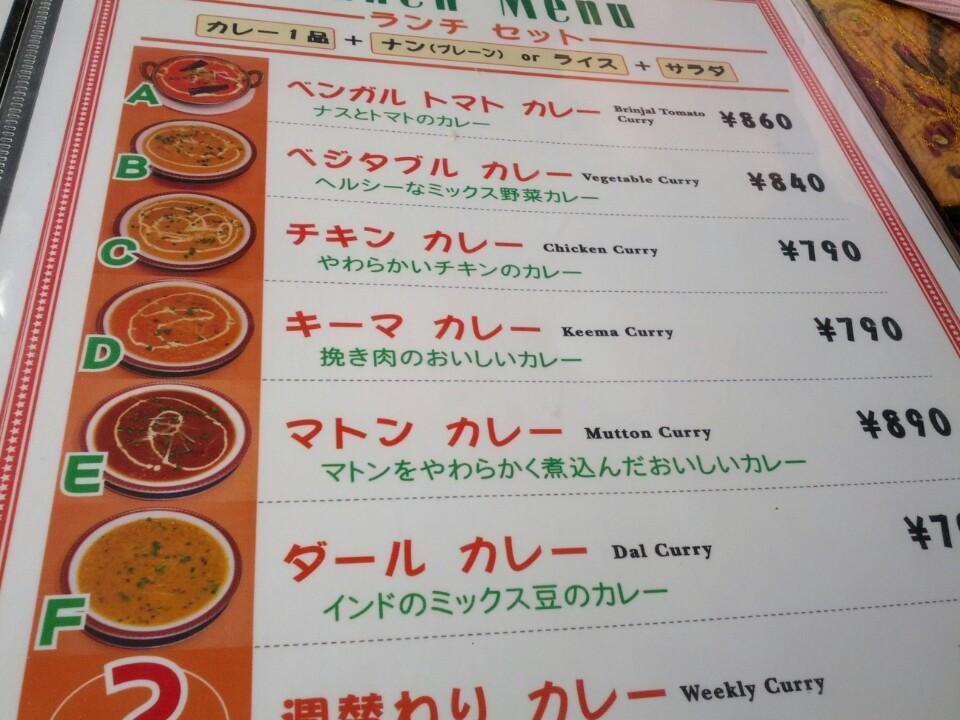 Menu
ランチ セット
カレー1品 + ナン(プレーン) or ライス + サラダ
A ベンガル トマト カレー Brinjal Tomato Curry ¥860
ナスとトマトのカレー
B ベジタブル カレー Vegetable Curry ¥840
ヘルシーなミックス野菜カレー
C チキン カレー Chicken Curry ¥790
やわらかいチキンのカレー
D キーマ カレー Keema Curry ¥790
挽き肉のおいしいカレー
E マトン カレー Mutton Curry ¥890
マトンをやわらかく煮込んだおいしいカレー
F ダール カレー Dal Curry ¥7
インドのミックス豆のカレー
? 週替わり カレー Weekly Curry